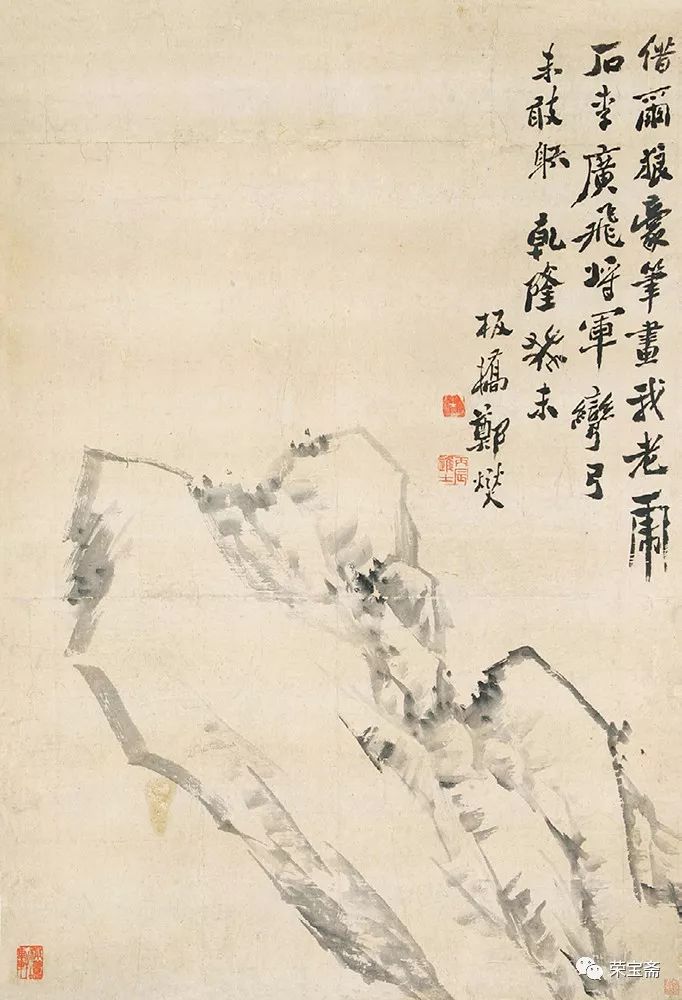 借爾狼豪筆畫我老虎
石李廣飛將軍彎弓
未敢䠶乾隆癸未
板橋鄭燮
丙辰進士
荣宝斋